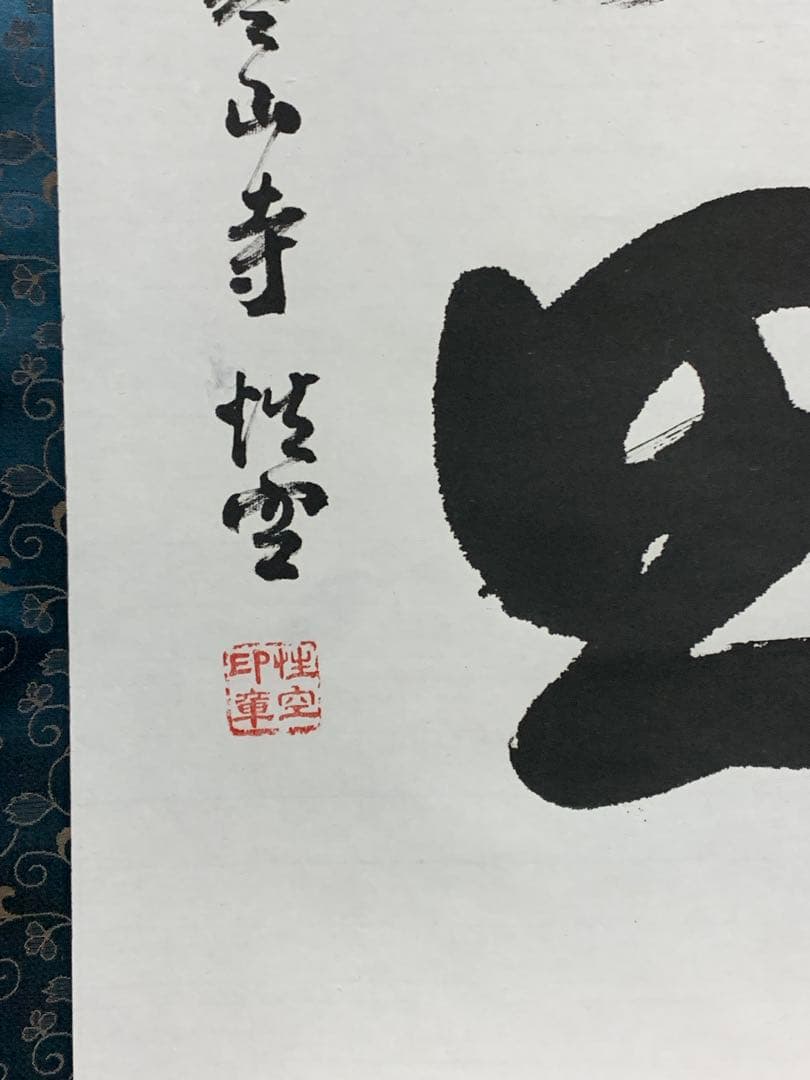 寒山寺 性空
性空印章